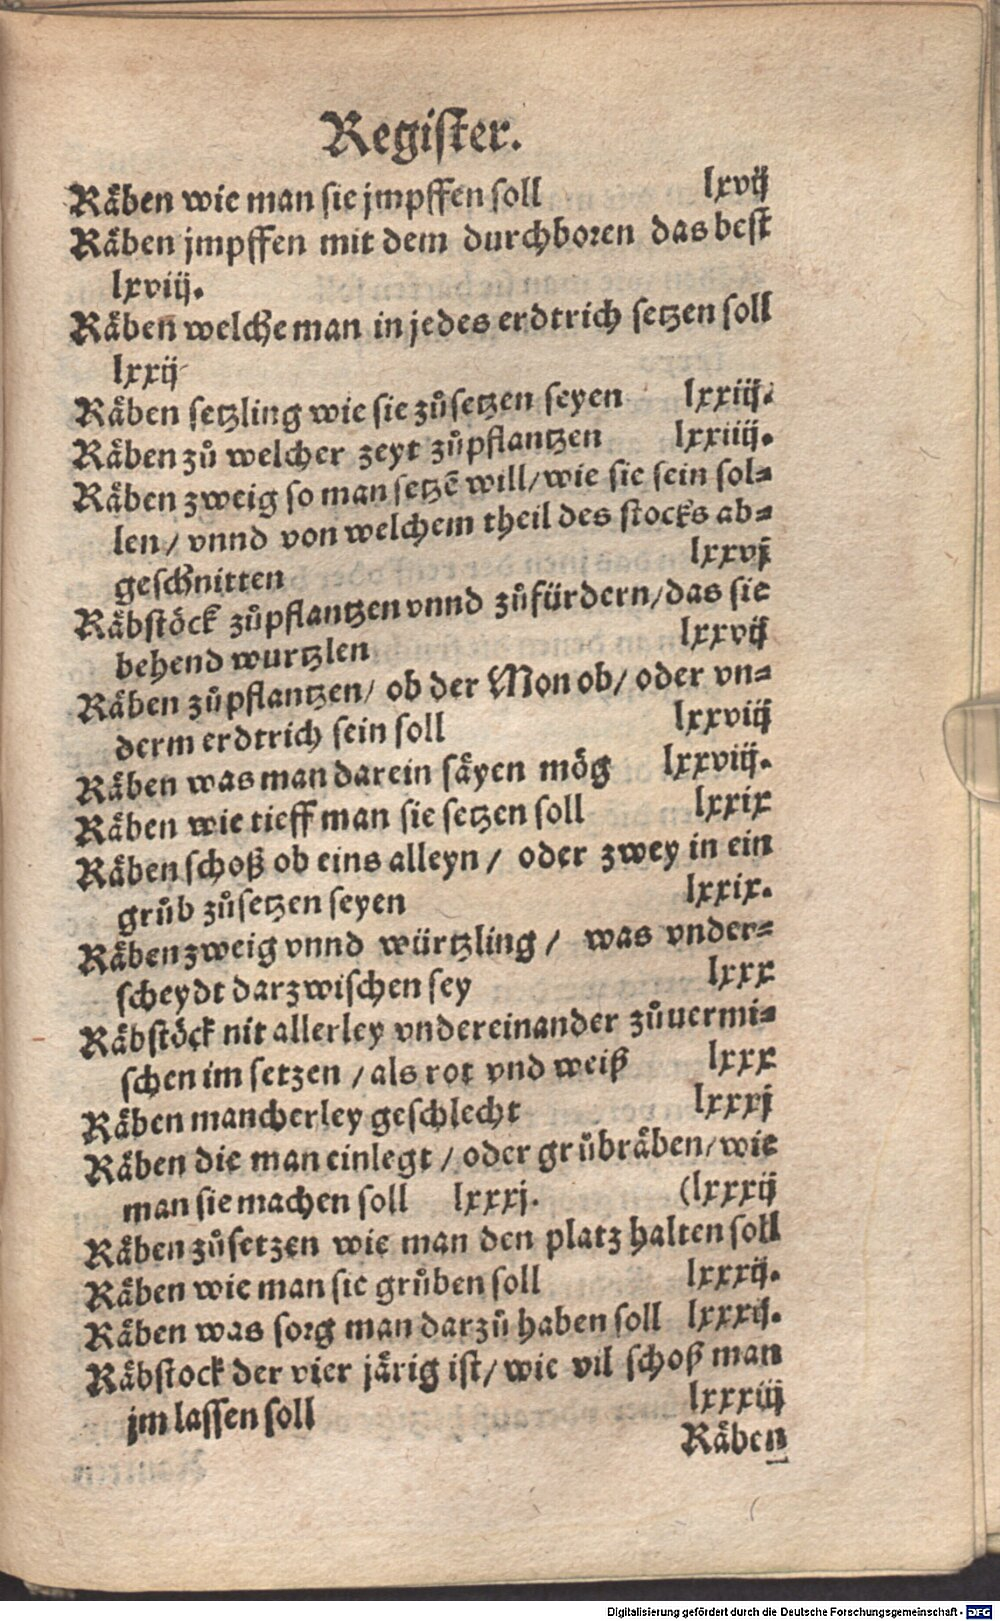 Regiſter.
Räben wie man ſie jmpffen ſoll lxvij
Räben jmpffen mit dem durchboren das beſt
lxviij.
Räben welche man in jedes erdtrich ſetzen ſoll
lxxij
Räben ſetzling wie ſie zůſetzen ſeyen lxxiij.
Räben zů welcher zeyt zůpflantzen lxxiiij.
Räben zweig ſo man ſetzē will/ wie ſie ſein ſol⸗
len/ vnnd von welchem theil des ſtocks ab⸗
geſchnitten lxxvj
Räbſtöck zůpflantzen vnnd zůfürdern/ das ſie
behend wurtzlen lxxvij
Räben zůpflantzen/ ob der Mon ob/ oder vn⸗
derm erdtrich ſein ſoll lxxviij
Räben was man darein ſäyen mög lxxviij.
Räben wie tieff man ſie ſetzen ſoll lxxix
Räben ſchoß ob eins alleyn/ oder zwey in ein
grůb zůſetzen ſeyen lxxix.
Räben zweig vnnd würtzling/ was vnder⸗
ſcheydt darzwiſchen ſey lxxx
Räbſtöck nit allerley vndereinander zůuermi⸗
ſchen im ſetzen/ als rot vnd weiß lxxx
Räben mancherley geſchlecht lxxxj
Räben die man einlegt/ oder grůbräben/ wie
man ſie machen ſoll lxxxj. (lxxxij
Räben zůſetzen wie man den platz halten ſoll
Räben wie man ſie grůben ſoll lxxxij.
Räben was ſorg man darzů haben ſoll lxxxij.
Räbſtock der vier järig iſt/ wie vil ſchoß man
jm laſſen ſoll lxxxiij
Räben
Digitalisierung gefördert durch die Deutsche Forschungsgemeinschaft - DFG